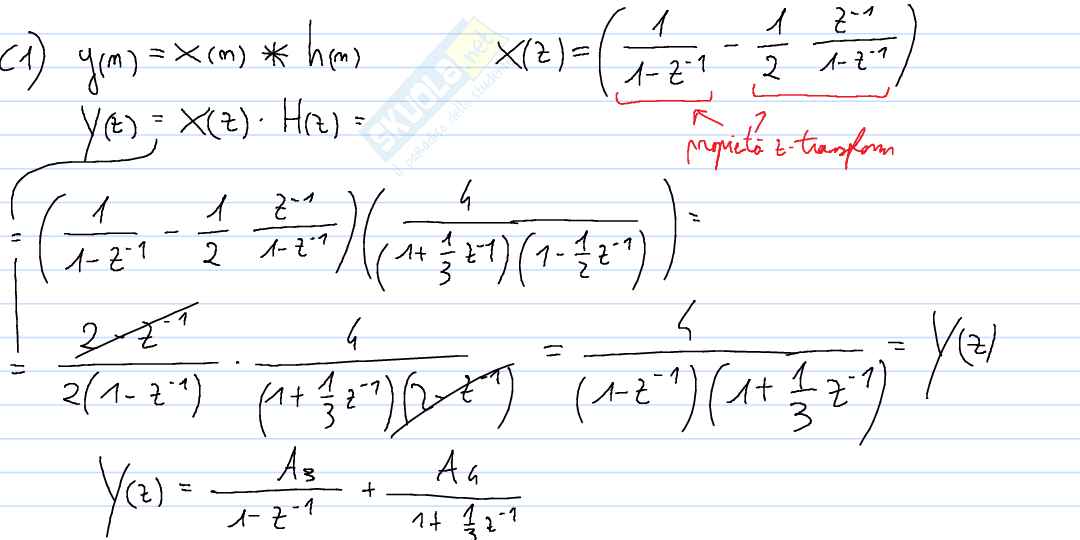 C1) y(n) = x(n) * h(n) X(z) = ( 1/(1-z⁻¹) - 1/2 z⁻¹/(1-z⁻¹) )
Y(z) = X(z) · H(z) =
propietà z-transform
= ( 1/(1-z⁻¹) - 1/2 z⁻¹/(1-z⁻¹) ) ( 4/((1+1/3 z⁻¹)(1-1/2 z⁻¹)) ) =
= (2-z⁻¹)/(2(1-z⁻¹)) · 4/((1+1/3 z⁻¹)(2-z⁻¹)) = 4/((1-z⁻¹)(1+1/3 z⁻¹)) = Y(z)
Y(z) = A₃/(1-z⁻¹) + A₄/(1+1/3 z⁻¹)
SKUOLA.net